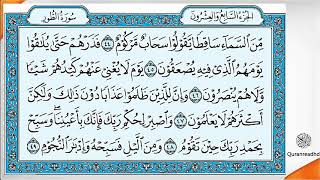 الجزء السابع والعشرون
سورة الطور
مِنَ السَّمَاءِ سَاقِطًا يَقُولُوا سَحَابٌ مَرْكُومٌ ٤٤ فَذَرْهُمْ حَتَّىٰ يُلَاقُوا
يَوْمَهُمُ الَّذِي فِيهِ يُصْعَقُونَ ٤٥ يَوْمَ لَا يُغْنِي عَنْهُمْ كَيْدُهُمْ شَيْئًا
وَلَا هُمْ يُنْصَرُونَ ٤٦ وَإِنَّ لِلَّذِينَ ظَلَمُوا عَذَابًا دُونَ ذَٰلِكَ وَلَٰكِنَّ
أَكْثَرَهُمْ لَا يَعْلَمُونَ ٤٧ وَاصْبِرْ لِحُكْمِ رَبِّكَ فَإِنَّكَ بِأَعْيُنِنَا وَسَبِّحْ
بِحَمْدِ رَبِّكَ حِينَ تَقُومُ ٤٨ وَمِنَ اللَّيْلِ فَسَبِّحْهُ وَإِدْبَارَ النُّجُومِ ٤٩
Quranreadhd